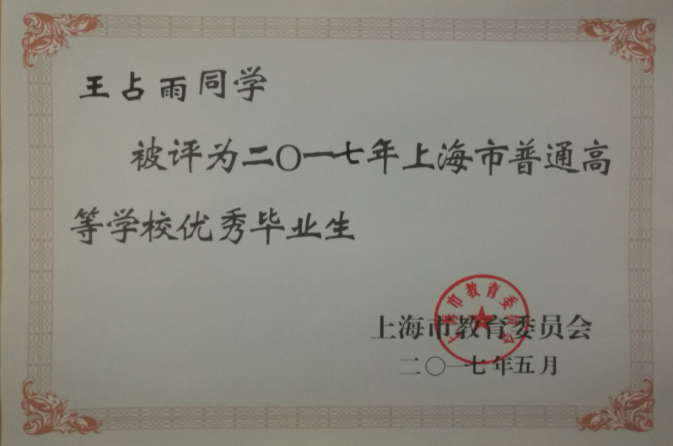 王占雨同学
被评为二〇一七年上海市普通高
等学校优秀毕业生
上海市教育委员会
上海市教育委员会
二〇一七年五月